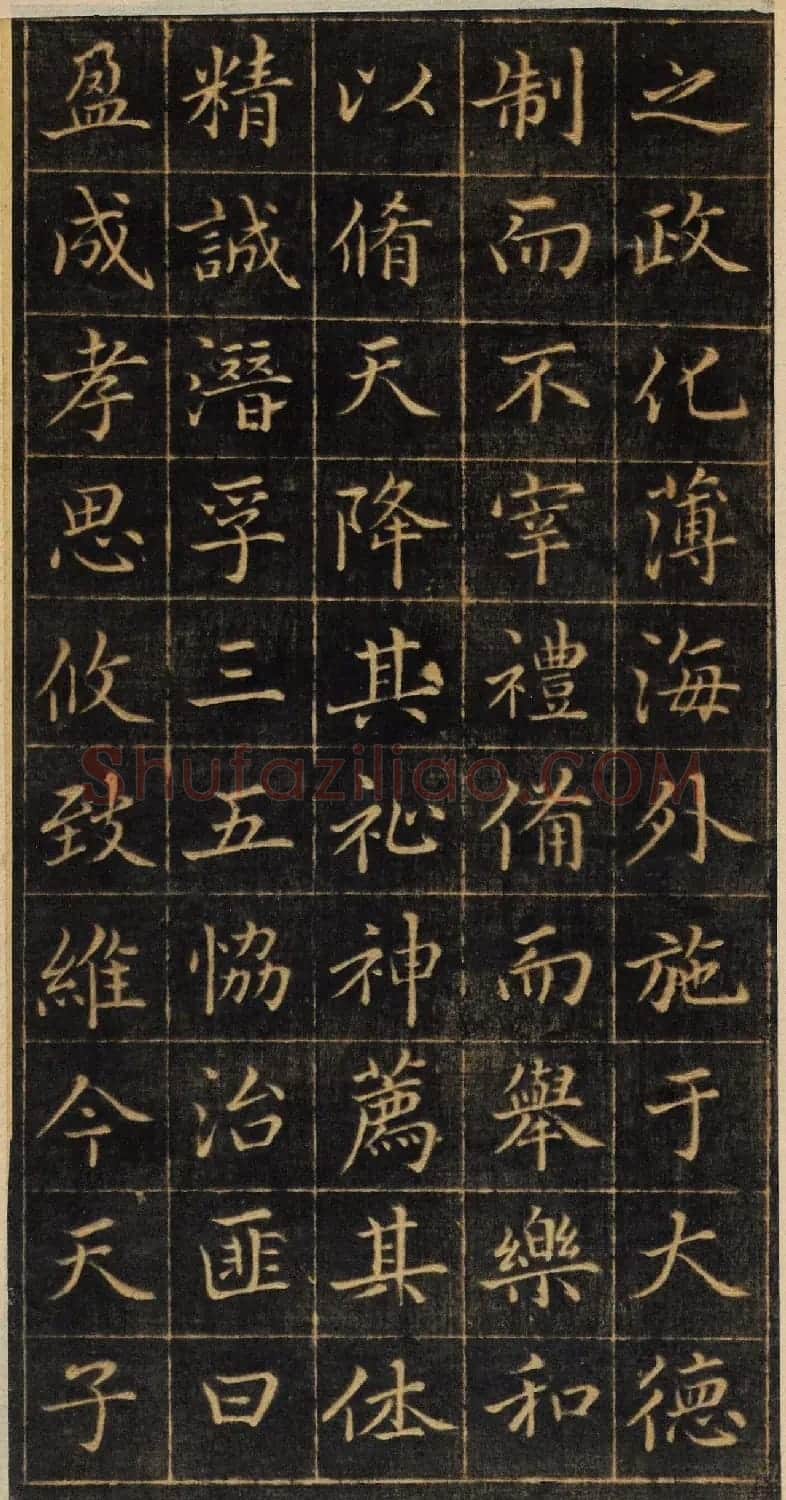 之政化薄海外施于大德
制而不宰禮備而舉樂和
以脩天降其祉神薦其休
精誠潛孚三五恊治匪曰
盈成孝思攸致維今天子
Shufaziliao.COM